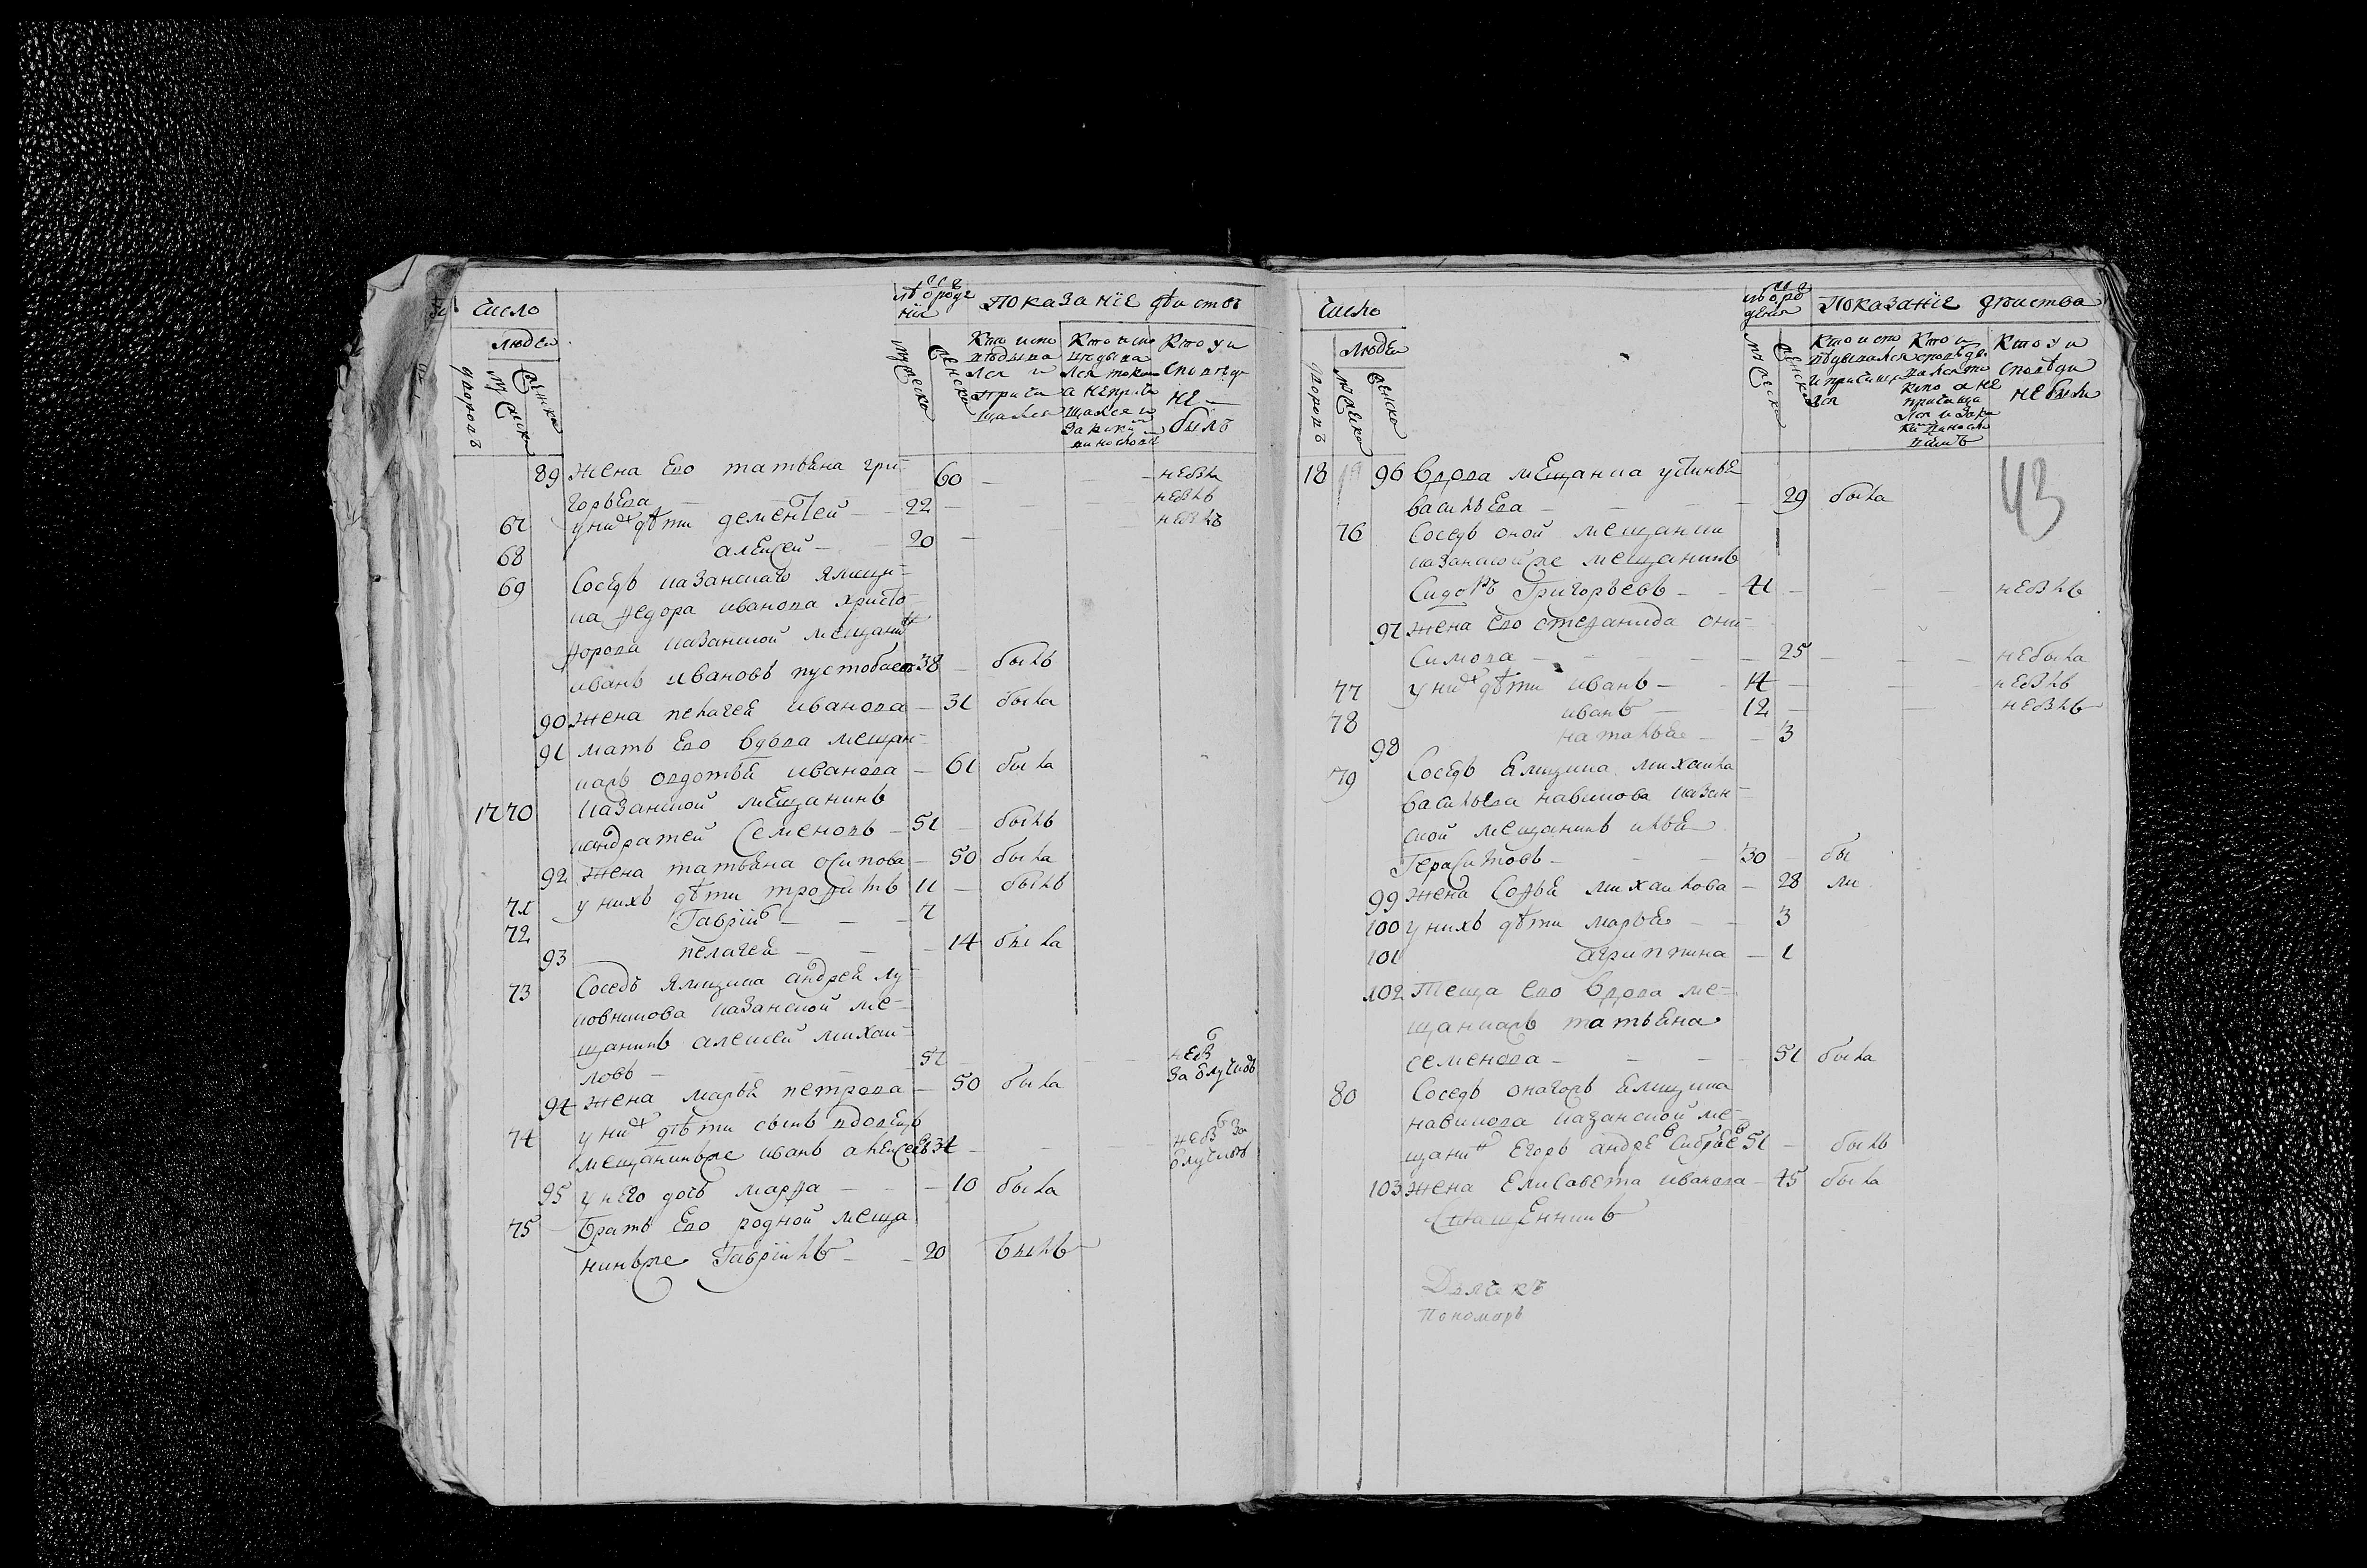 Число
лѣтъ о рожде
нія
Показаніе дѣйства
людей
дворовъ
мужеска
женска
мужеска
женска
Кто испо
вѣдыва
лся и
прича
щался
Кто испо
вѣдыва
лся токмо
а неприча
щался и
за какимъ
виносло
Кто у и
сповѣди
не
былъ
89 жена Ево татьяна гри 60 - - - небыла
горьева
67 у нихъ дѣти дементей 22 - небылъ
68 алексей 20 - небылъ
69 Соседъ казанскаго Ямщи
ка Федора иванова христо
форова казанской мещанинъ
иванъ ивановъ 38 - былъ
90 жена пелагея иванова - 31 была
91 мать Ево вдова мещан
каяъ овдотья иванова - 61 была
17 70 казанской мещанинъ
кондратей Семеновъ - 51 - былъ
92 жена татьяна осипова - 50 была
71 у нихъ дѣти трофимъ 11 - былъ
72 Гаврiилъ - - 7
93 пелагея - - - 14 была
73 Соседъ Ямщика андрея лу
ковникова казанской ме
щанинъ алексей михаи
ловъ - - 51 - - - небылъ
за отлучкою
94 жена марья петрова - 50 была
74 у нихъ дѣти сынъ вдовецъ
мещанинъже иванъ алексеевъ 34 - - небылъ за
отлучкою
95 у него дочь марфа - - - 10 была
75 Братъ Ево родной меща
нинъже Гаврiилъ - - 20 былъ
Число
лѣтъ о ро
жденія
Показаніе дѣйства
людей
дворовъ
мужеска
женска
мужеска
женска
Кто испо
вѣдывался
и причаща
лся
Кто и
сповѣды
вался то
кмо а не
причаща
лся и за ка
кимъ виносло
віемъ
Кто у и
сповѣди
не были
43
18 96 Вдова мещанка устинья
васильева - - - - 29 была
76 Соседъ оной мещанки
казанскойже мещанинъ
Сидоръ Григорьевъ - - 41 - - - небылъ
97 жена Ево степанида они
симова - - - - - 25 - - - небыла
77 у нихъ дѣти иванъ - - 14 - - - небылъ
78 иванъ - 12 - - небылъ
98 наталья - - 3
79 Соседъ Ямщика михаила
васильева навикова казан
ской мещанинъ илья
Герасимовъ - - - 30 - бы
99 жена Софья михаилова - 28 ли
100 у нихъ дѣти марья - - 3
101 агриппина - 1
102 Теща ево вдова ме
щанкаяъ татьяна
семенова - - - - 51 была
80 Соседъ онагожъ Ямщика
навикова казанской ме
щанинъ Егоръ андреевъ 51 - былъ
103 жена Елисавета иванова - 45 была
Священникъ
Дьячекъ
Пономарь